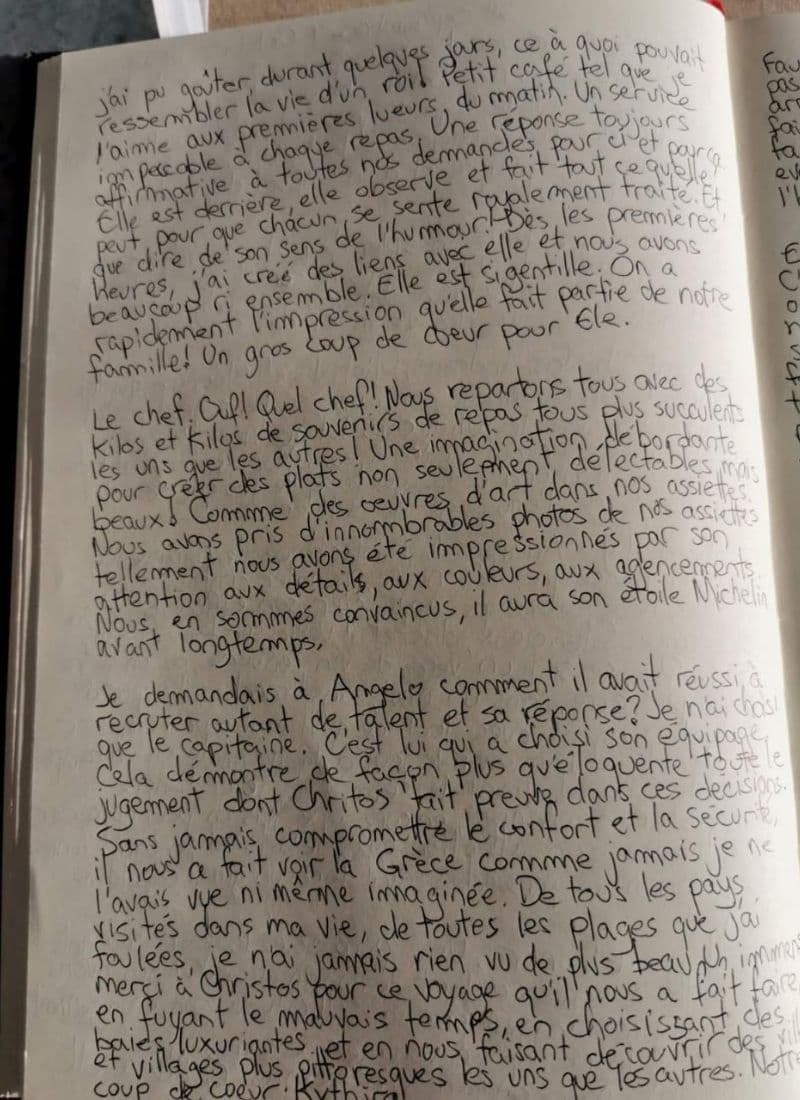 j'ai pu goûter, durant quelques jours, ce à quoi pouvait
ressembler la vie d'un roi! Petit café tel que je
l'aime aux premières lueurs du matin. Un service
impeccable à chaque repas. Une réponse toujours
affirmative à toutes nos demandes, pour ci et pour ça
Elle est derrière, elle observe et fait tout ce qu'elle
peut pour que chacun se sente royalement traité. Et
que dire de son sens de l'humour! Dès les premières
heures, j'ai créé des liens avec elle et nous avons
beaucoup ri ensemble. Elle est si gentille. On a
rapidement l'impression qu'elle fait partie de notre
famille! Un gros coup de coeur pour Ele.
Le chef. Ouf! Quel chef! Nous repartons tous avec des
kilos et kilos de souvenirs de repas tous plus succulents
les uns que les autres! Une imagination débordante
pour créer des plats non seulement délectables, mais
beaux! Comme des oeuvres d'art dans nos assiettes.
Nous avons pris d'innombrables photos de nos assiettes
tellement nous avons été impressionnés par son
attention aux détails, aux couleurs, aux agencements.
Nous en sommes convaincus, il aura son étoile Michelin
avant longtemps.
Je demandais à Angelo comment il avait réussi à
recruter autant de talent et sa réponse? Je n'ai choisi
que le capitaine. C'est lui qui a choisi son équipage.
Cela démontre de façon plus qu'éloquente toute le
jugement dont Chritos fait preuve dans ces décisions.
Sans jamais compromettre le confort et la sécurité,
il nous a fait voir la Grèce comme jamais je ne
l'avais vue ni même imaginée. De tous les pays
visités dans ma vie, de toutes les plages que j'ai
foulées, je n'ai jamais rien vu de plus beau. Un immens
merci à Christos pour ce voyage qu'il nous a fait faire
en fuyant le mauvais temps, en choisissant des
baies luxuriantes et en nous faisant découvrir des vill
et villages plus pittoresques les uns que les autres. Notre
coup de coeur: Kythira
Fau
pas
art
fai
fa
ev
l'u